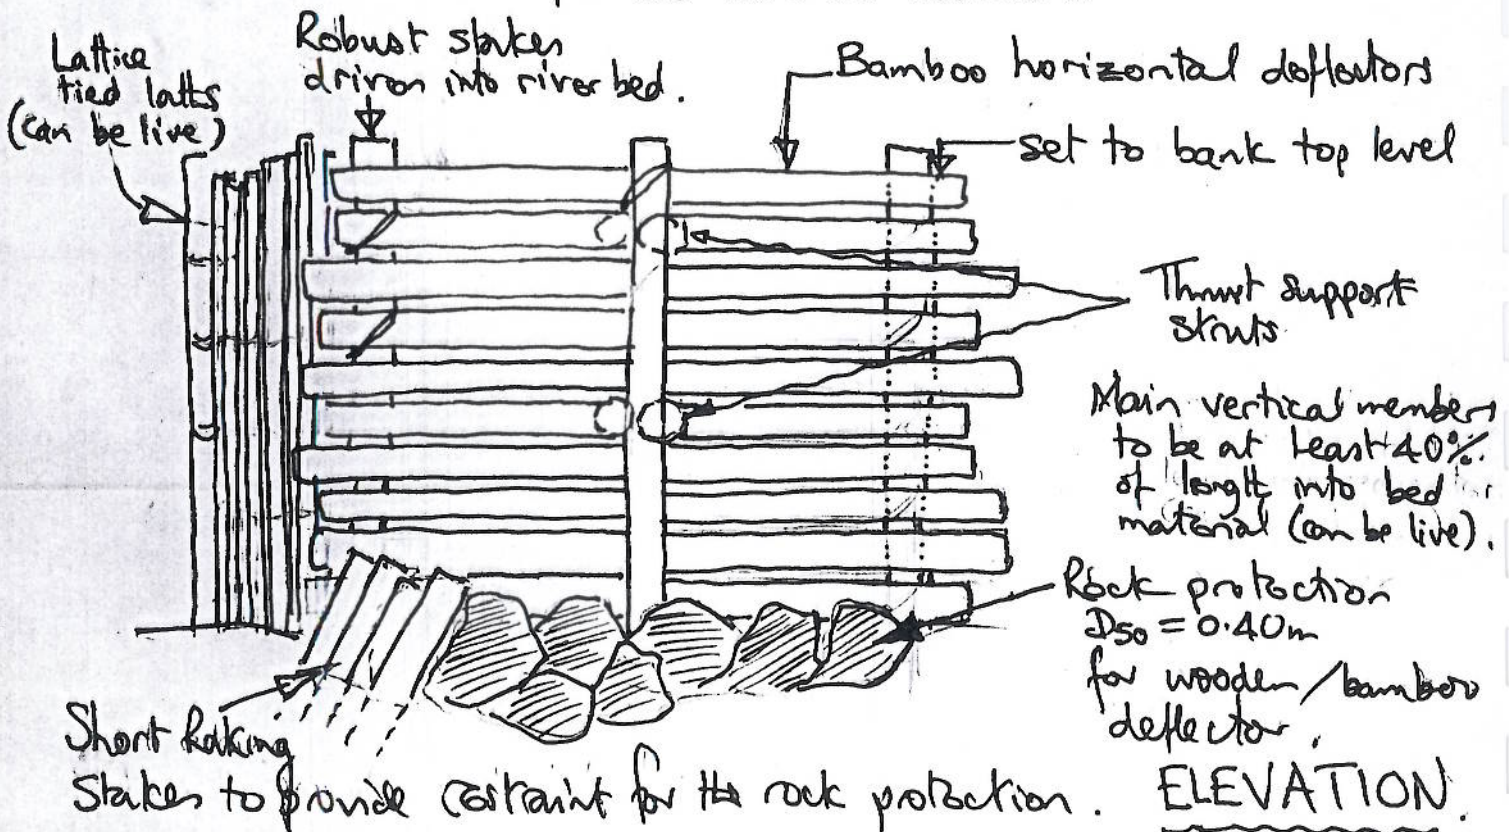 Lattice
tied latts
(can be live)
Robust stakes
driven into river bed.
Bamboo horizontal deflectors
set to bank top level
Thrust support
struts
Main vertical members
to be at least 40%
of length into bed
material (can be live).
Rock protection
D50 = 0.40m
for wooden/bamboo
deflector.
Short Raking
Stakes to provide restraint for the rock protection.
ELEVATION.